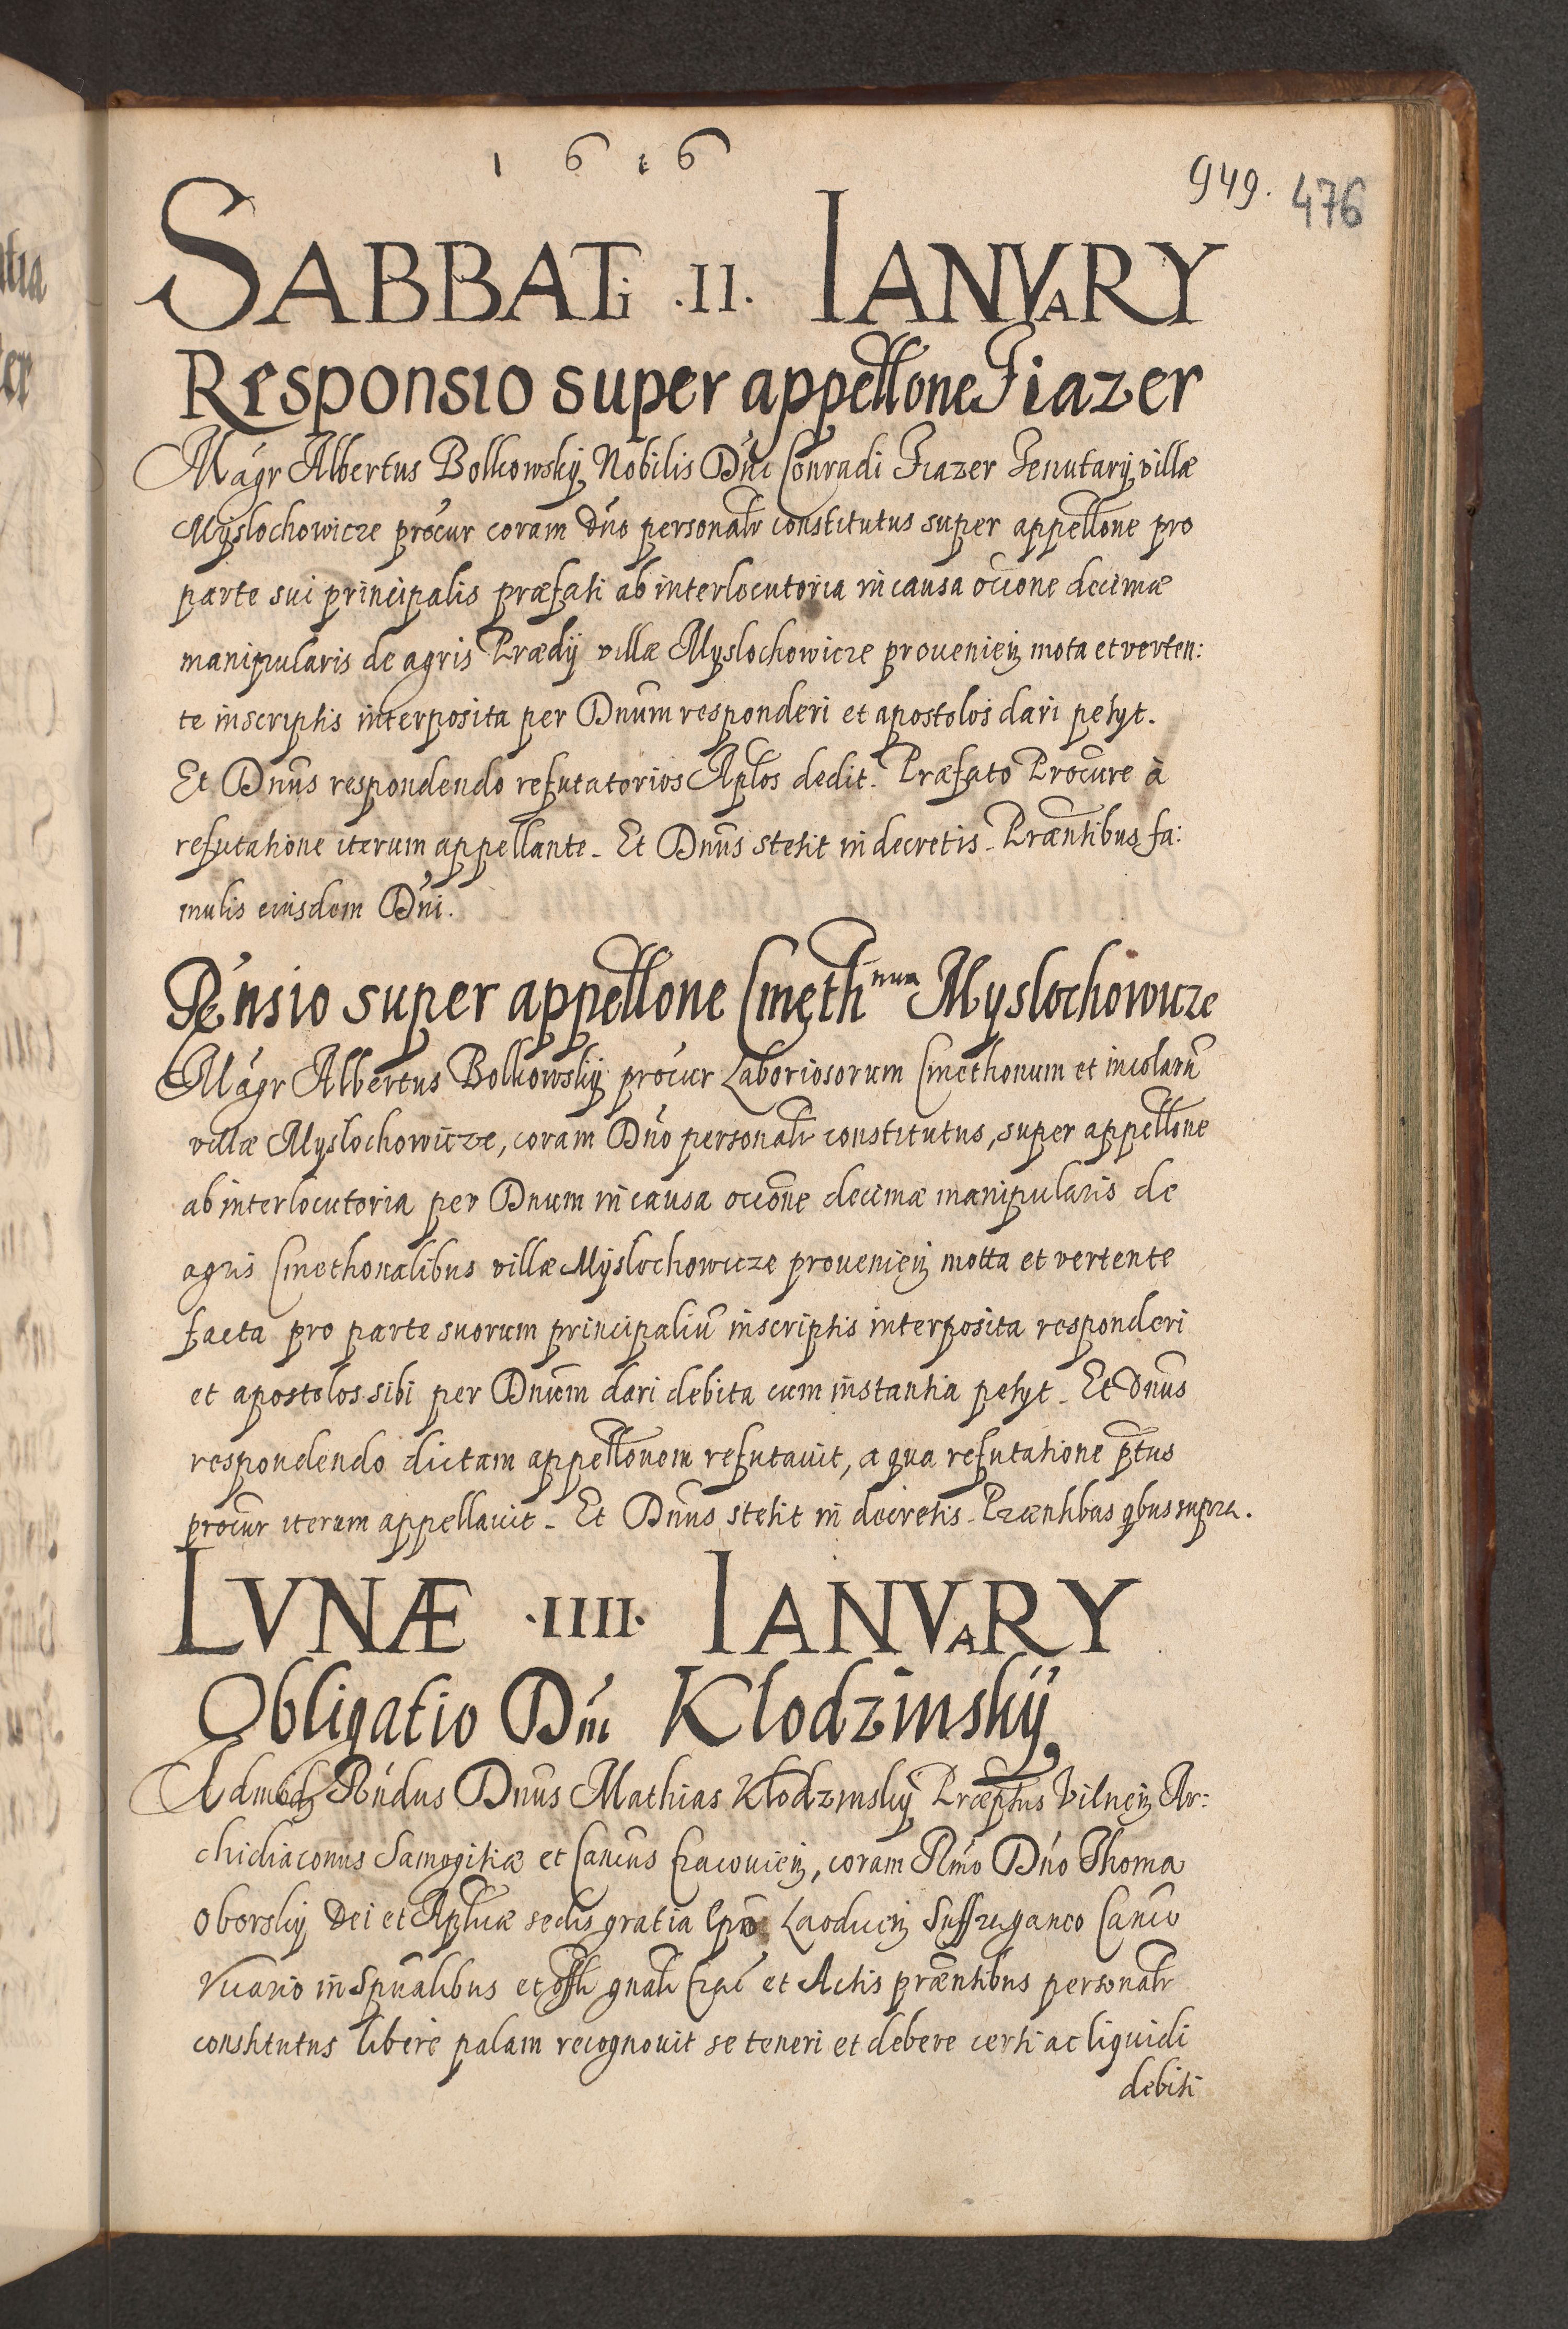 1 6 1 6
949. 476
SABBATi .II. IANVARY
Responsio super appellone Fiazer
Mágr Albertus Bolkowskÿ Nobilis Dni Conradi Fiazer Tenutarÿ villæ
Myslochowicze procur coram Dno personalr constitutus super appellone pro
parte sui principalis præfati ab interlocutoria in causa occone decimæ
manipularis de agris Prædÿ villæ Myslochowicze prouenien mota et verten:
te inscriptis interposita per Dnum responderi et apostolos dari petyt.
Et Dnus respondendo refutatorios Aplos dedit. Præfato Procure à
refutatione iterum appellante. Et Dnus stetit in decretis. Præntibus fa:
mulis eiusdem Dni.
Rnsio super appellone Cmethnum Myslochowicze
Mágr Albertus Bolkowskÿ procur Laboriosorum Cmethonum et incolarū
villæ Myslochowicze, coram Dno personalr constitutus, super appellone
ab interlocutoria per Dnum in causa occone decimæ manipularis de
agris Cmethonalibus villæ Myslochowicze prouenien motta et vertente
facta pro parte suorum principaliū inscriptis interposita responderi
et apostolos sibi per Dnum dari debita cum instantia petyt. Et Dnus
respondendo dictam appellonem refutauit, a qua refutatione ptus
procur iterum appellauit. Et Dnus stetit in decretis. Præntibus qbus supra.
LVNÆ .IIII. IANVARY
Obligatio Dni Klodzinskÿ
Admodz Rndus Dnus Mathias Klodzinskÿ Præptus Vilnen Ar:
chidiaconus Samogitiæ et Cancus Cracouien, coram Rmo Dno Thoma
Oborskÿ Dei et Aplicæ sedis gratia Epo Laodicen Suffraganeo Canco
Vicario in Spualibus et offli gnali Crac et Actis præntibus personalr
constitutus liberè palam recognouit se teneri et debere certi ac liquidi
debiti